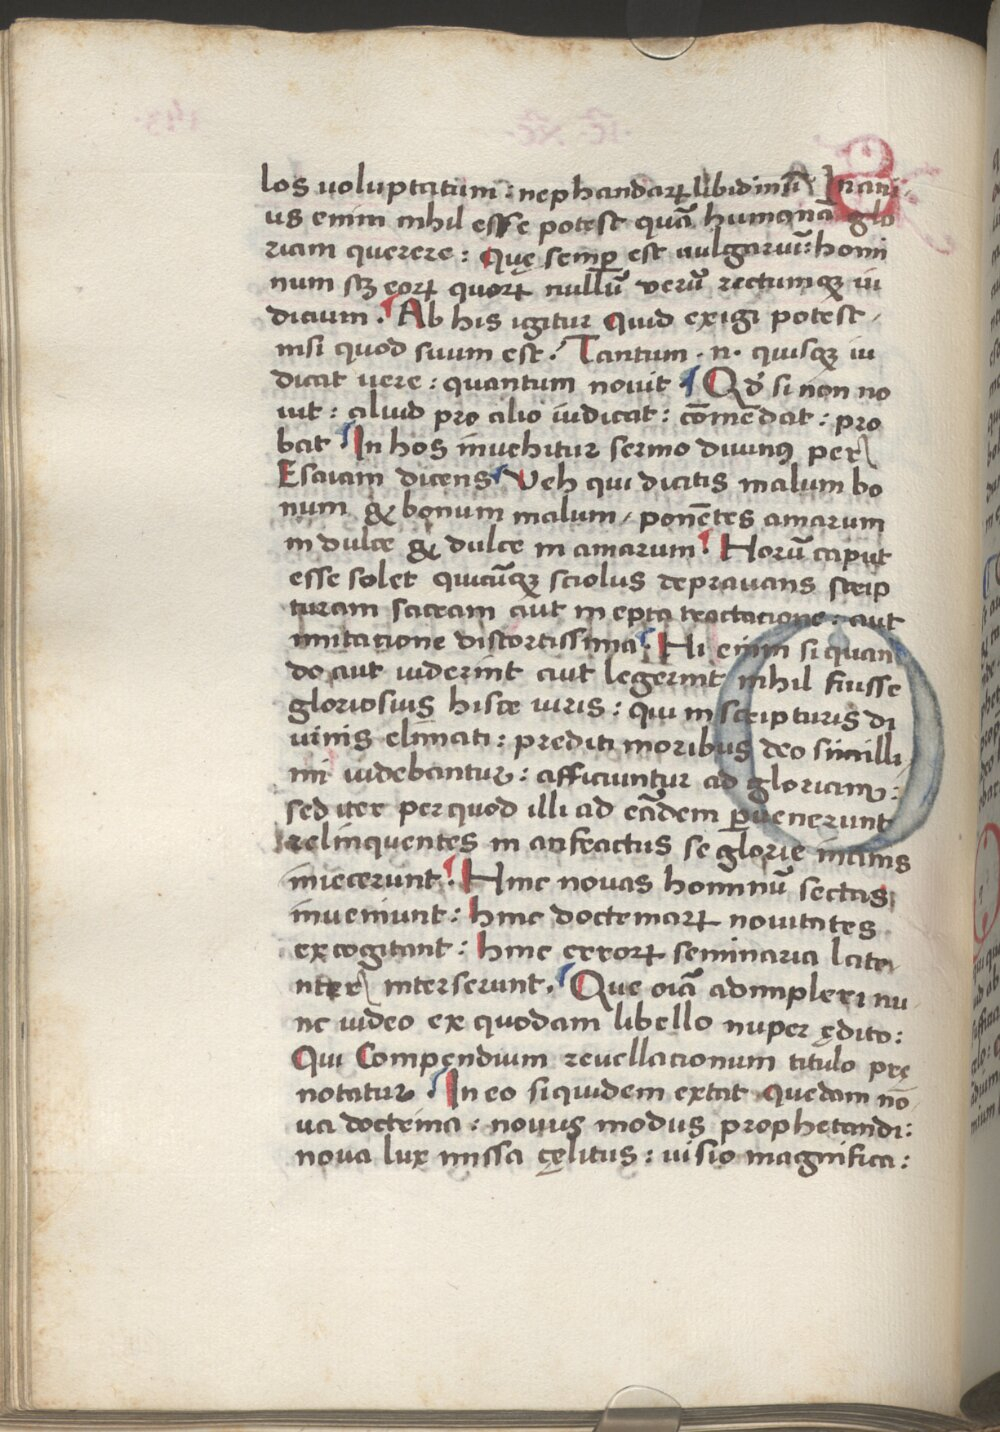 los uoluptatum : nephandarꝝ libidinũ Inani-
us enim nihil esse potest quã humanã glo
riam querere : Quę semꝑ est uulgariũ : homi
num scꝫ eorꝝ quorꝝ nullũ verũ rectumqꝫ iu
dicium . Ab his igitur Quid exigi potest /
nisi quod suum est . Tantum . n . quisqꝫ iu
dicat uere : quantum nouit . Qđ si non no
uit : aliud pro alio iudicat : cõmẽdat : pro
bat In hos inuehitur sermo diuinꝰ per
Esaiam dicens Veh qui dicitis malum bo
num & bonum malum / ponẽtes amarum
in dulce & dulce in amarum . Horũ caput
esse solet quicũqꝫ sciolus deprauans scrip
turam sacram aut inepta tractacione : aut
imitacione distortissima . Hi enim si quan
do aut uiderint aut legerint nihil fuisse
gloriosius hisce uiris : qui in scripturis di
uinis elimati : prediti moribus deo simillí
mi uidebantur : afficiuntur ad gloriam :
sed iter per quod illi ad eãdem ꝑuenerunt
relinquentes in anfractus se glorie inanis
iniecerunt . Hinc nouas hominũ sectas
inueniunt : hinc doctrinarꝝ nouitates
excogitant : hinc errorꝝ seminaria late
nter interserunt . Que oĩa adimpleri nu
nc uideo ex quodam libello nuper ędito :
Qui Compendium reuellacionum titulo prę
notatur In eo siquidem extat Quedam nõ
ua doctrina : nouus modus prophetandi :
noua lux missa cęlitus : uisio magnifica :